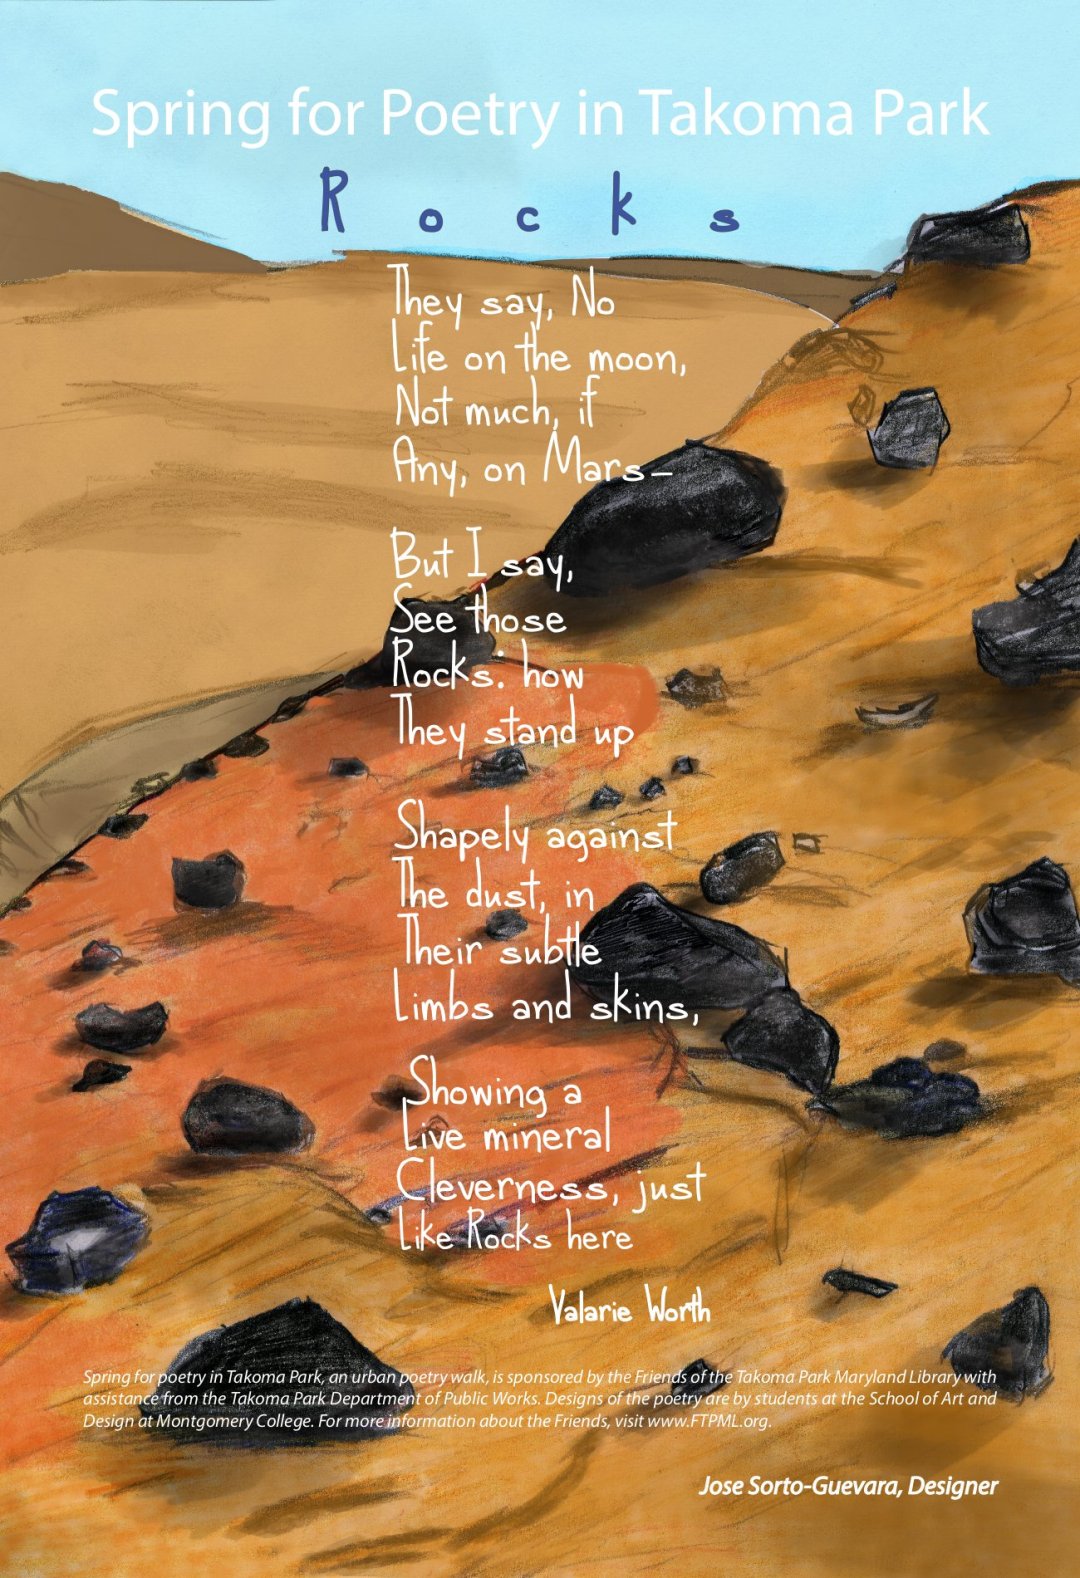 Spring for Poetry in Takoma Park
Rocks
They say, No
Life on the moon,
Not much, if
Any, on Mars–
But I say,
See those
Rocks: how
They stand up
Shapely against
The dust, in
Their subtle
Limbs and skins,
Showing a
Live mineral
Cleverness, just
Like Rocks here
Valarie Worth
Spring for poetry in Takoma Park, an urban poetry walk, is sponsored by the Friends of the Takoma Park Maryland Library with
assistance from the Takoma Park Department of Public Works. Designs of the poetry are by students at the School of Art and
Design at Montgomery College. For more information about the Friends, visit www.FTPML.org.
Jose Sorto-Guevara, Designer